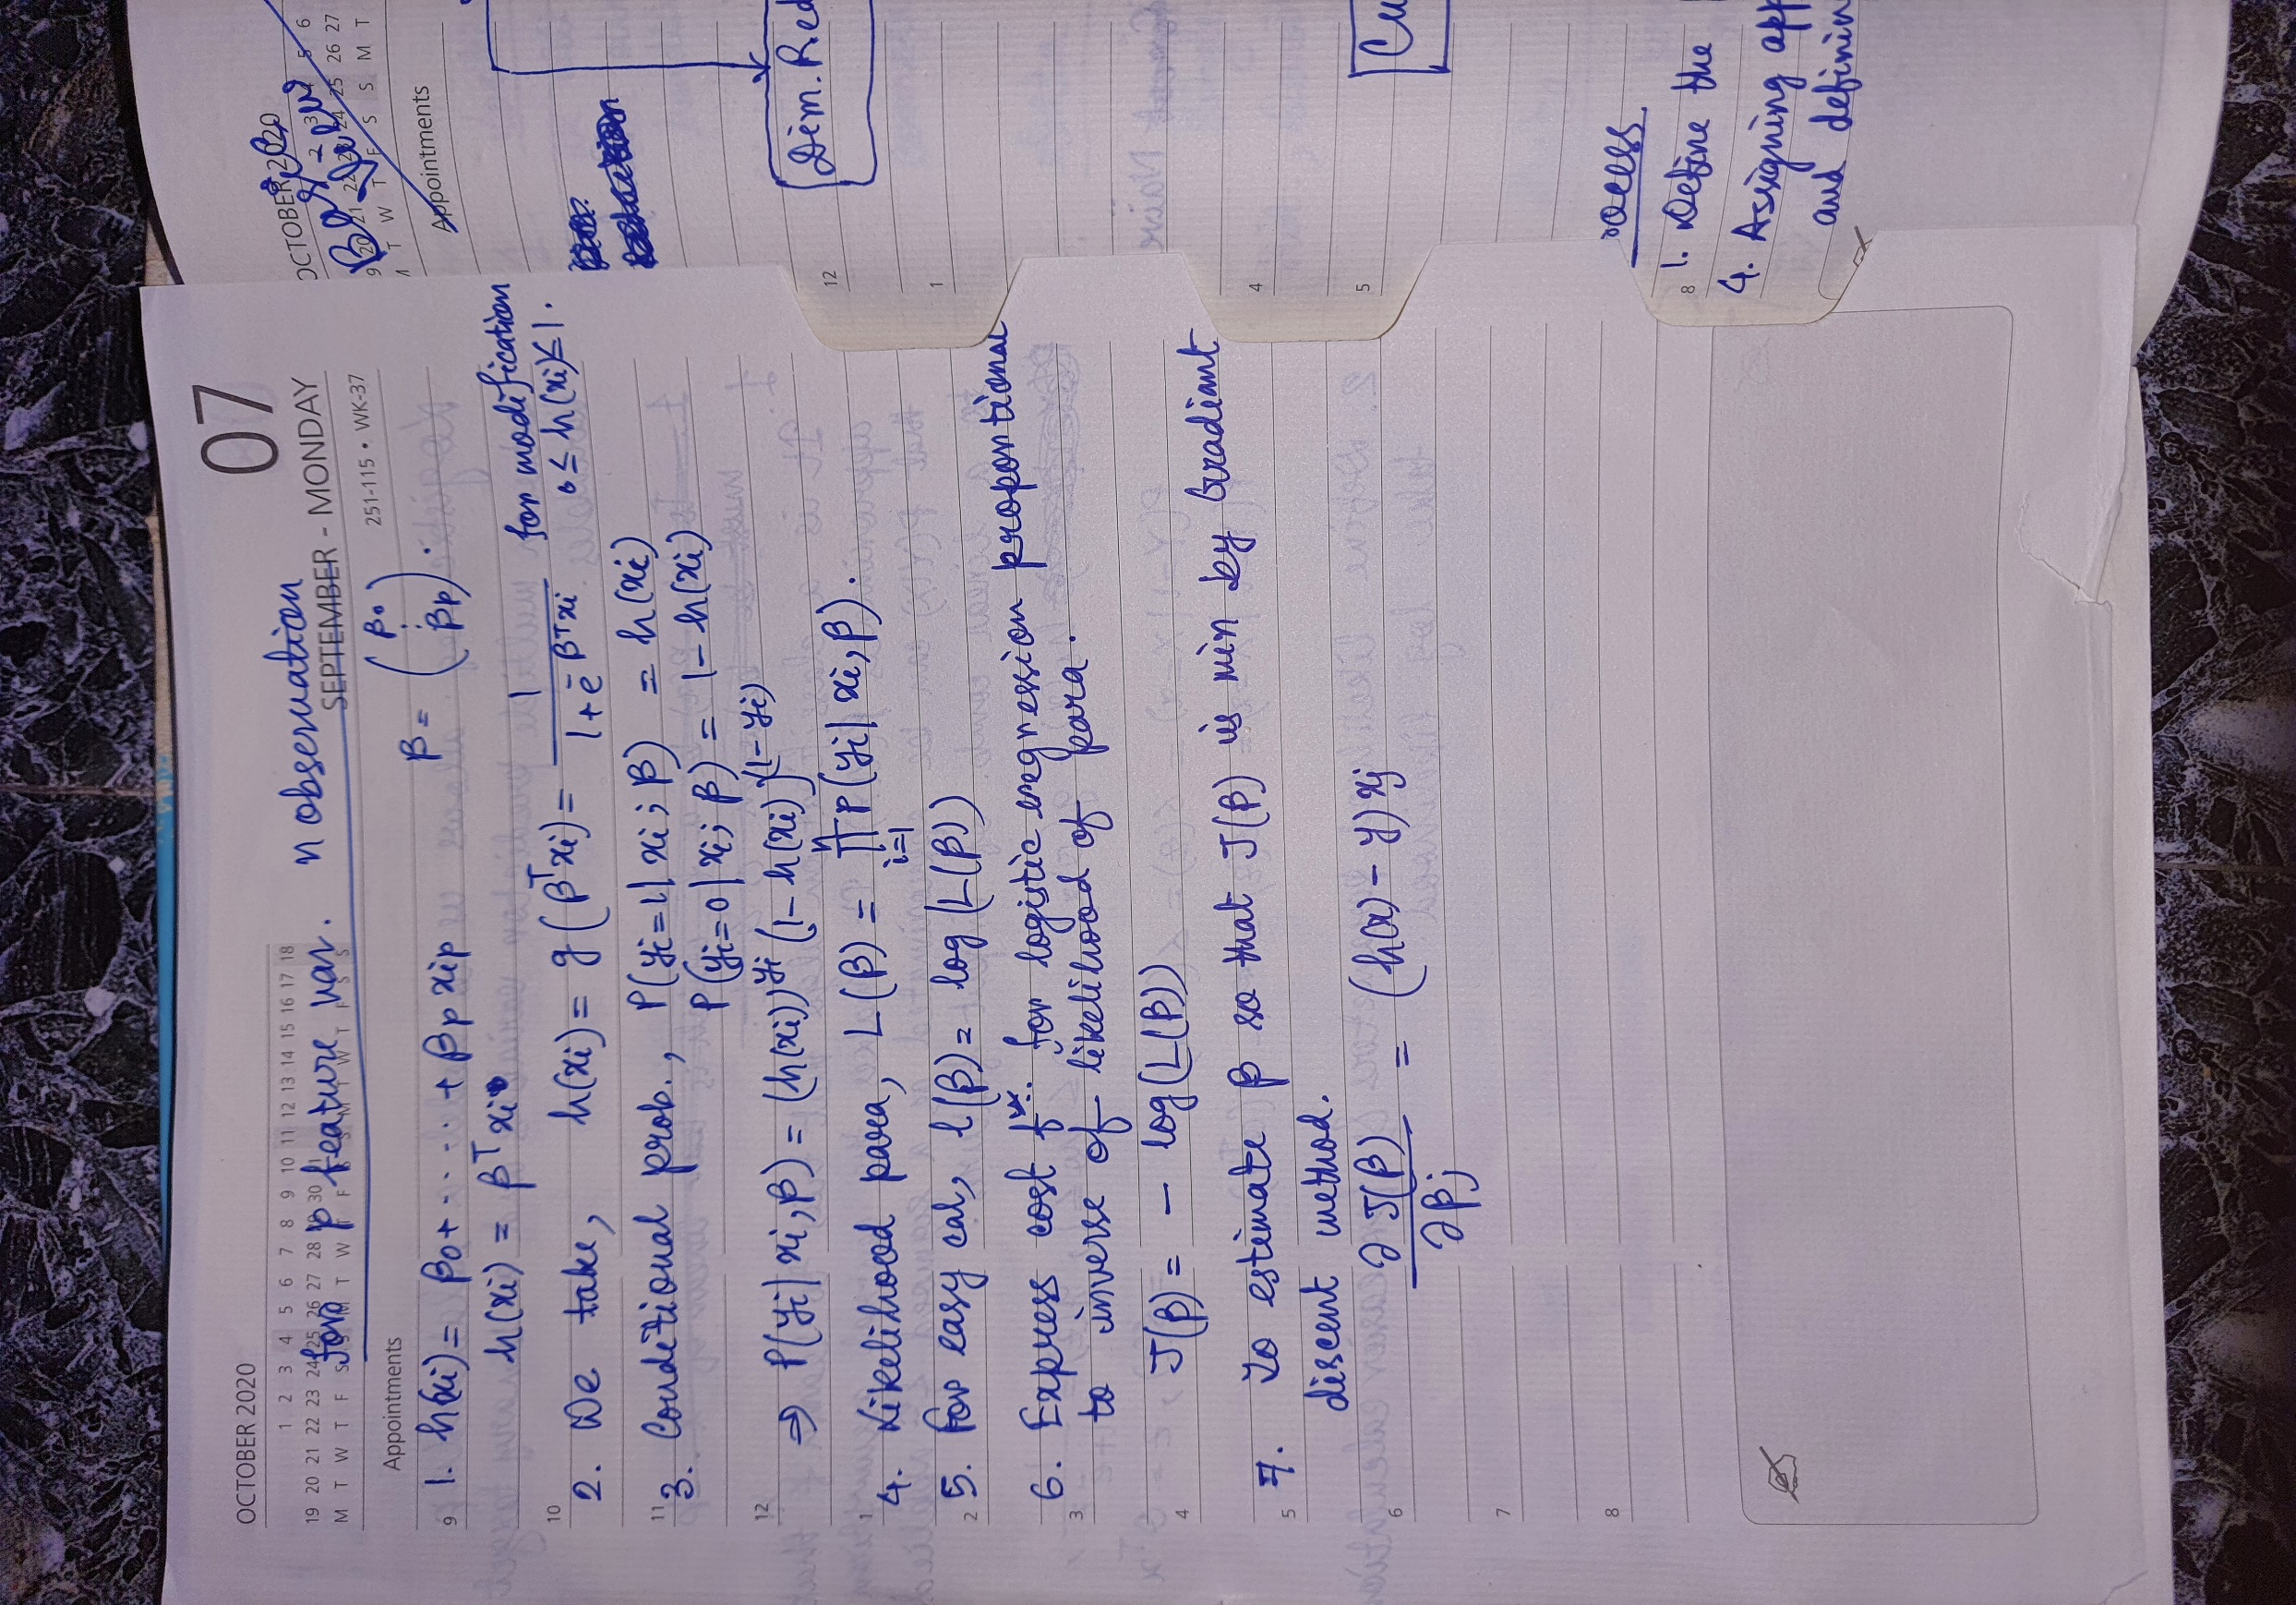 07
OCTOBER 2020
1 2 3 4 5 6 7 8 9 10 11 12 13 14 15 16 17 18
19 20 21 22 23 24 25 26 27 28 29 30 31
M T W T F S S M T W T F S S M T W T F S S
SEPTEMBER - MONDAY
251-115 • WK-37
for p feature var. n observation
Appointments
9
1. h(xi) = β0 + .... + βp xip β = (β0 ⋮ βp).
h(xi) = β^T xi
10
2. We take, h(xi) = g(β^T xi) = 1/(1 + e^-β^T xi) for modification 0 ≤ h(xi) ≤ 1.
11
3. Conditional prob., P(yi=1 | xi; β) = h(xi)
P(yi=0 | xi; β) = 1 - h(xi)
12
⇒ P(yi | xi, β) = (h(xi))^yi (1 - h(xi))^(1-yi)
1
4. Likelihood para, L(β) = ∏_{i=1}^{n} P(yi | xi, β).
2
5. For easy cal, l(β) = log(L(β))
3
6. Express cost f^n. for logistic regression proportional
to inverse of likelihood of para.
4
J(β) = - log(L(β))
5
7. To estimate β so that J(β) is min by Gradient
discent method.
6
∂J(β)/∂βj = (h(x) - y) xj
7
8
OCTOBER 2020
2 3 4 5 6
9 20 21 22 23 24 25 26 27
T W T F S S M T
Appointments
Dim. Red
12
1
4
5
Cu
ocess
8
1. Define the
4. Assigning app
and definin